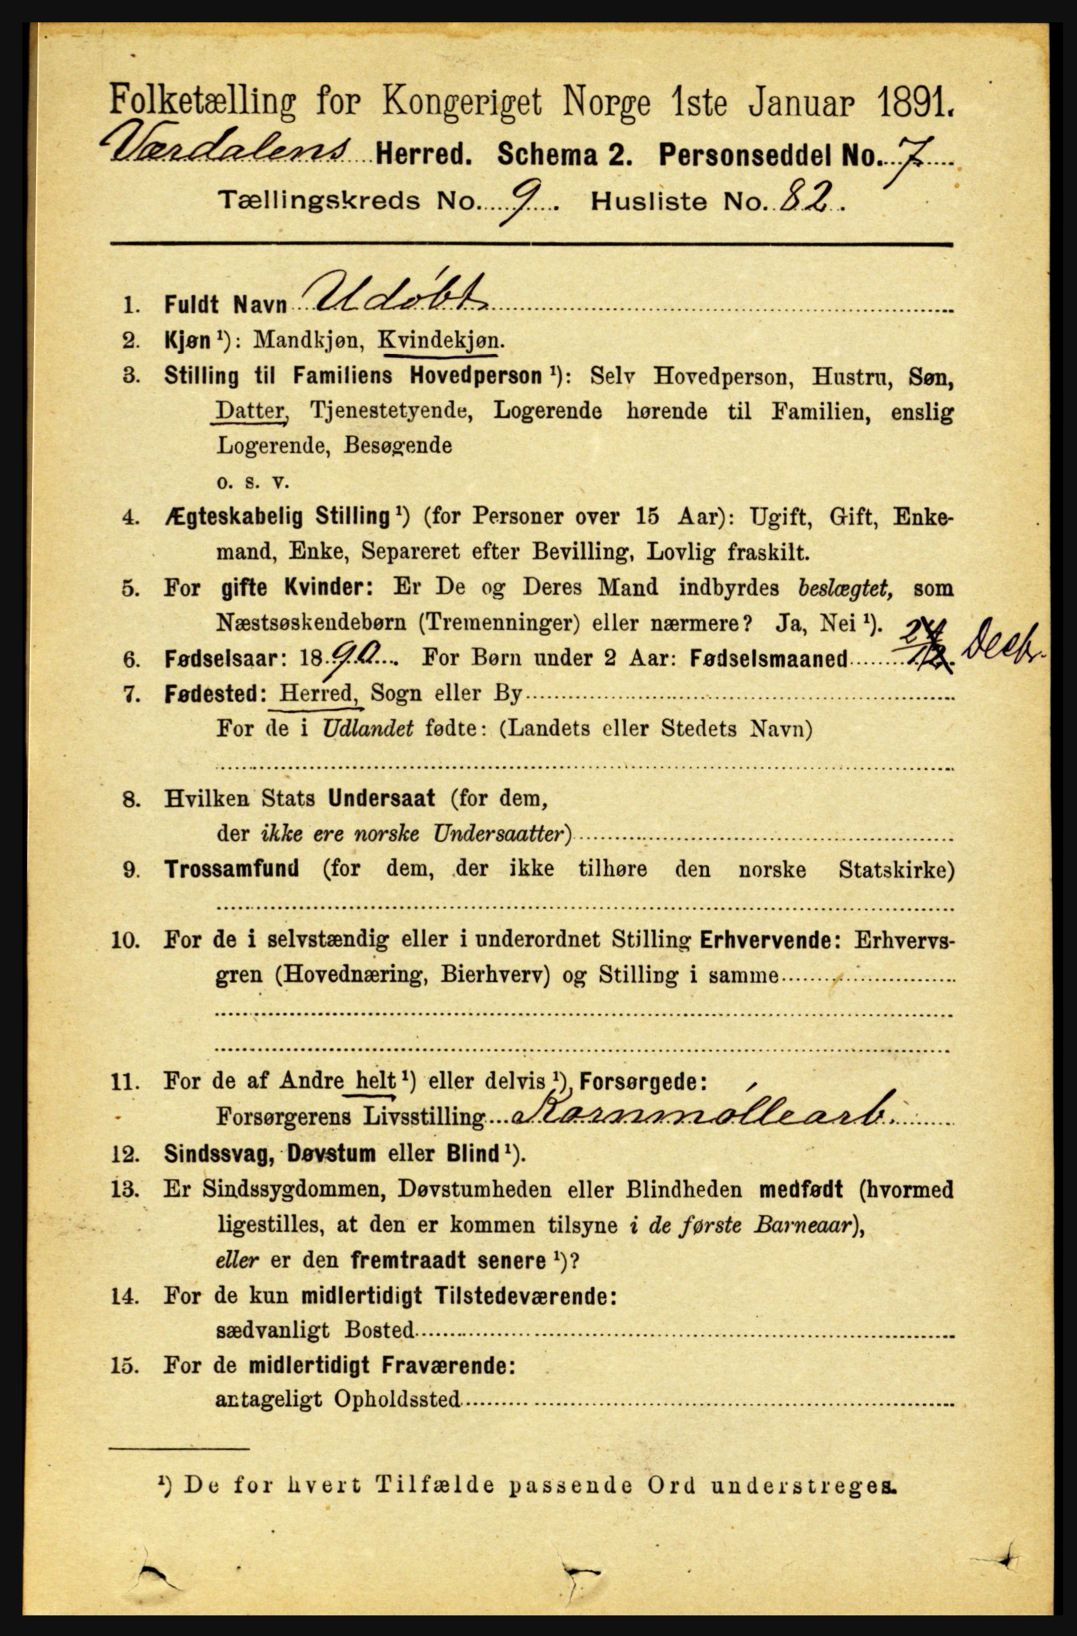 Folketælling for Kongeriget Norge 1ste Januar 1891.
Værdalens Herred. Schema 2. Personseddel No. 7
Tællingskreds No. 9. Husliste No. 82.
1. Fuldt Navn Udøbt
2. Kjøn ¹): Mandkjøn, Kvindekjøn.
3. Stilling til Familiens Hovedperson ¹): Selv Hovedperson, Hustru, Søn,
Datter, Tjenestetyende, Logerende hørende til Familien, enslig
Logerende, Besøgende
o. s. v.
4. Ægteskabelig Stilling ¹) (for Personer over 15 Aar): Ugift, Gift, Enke-
mand, Enke, Separeret efter Bevilling, Lovlig fraskilt.
5. For gifte Kvinder: Er De og Deres Mand indbyrdes beslægtet, som
Næstsøskendebørn (Tremenninger) eller nærmere? Ja, Nei ¹).
6. Fødselsaar: 1890. For Børn under 2 Aar: Fødselsmaaned 24/12. Decbr.
7. Fødested: Herred, Sogn eller By
For de i Udlandet fødte: (Landets eller Stedets Navn)
8. Hvilken Stats Undersaat (for dem,
der ikke ere norske Undersaatter)
9. Trossamfund (for dem, der ikke tilhøre den norske Statskirke)
10. For de i selvstændig eller i underordnet Stilling Erhvervende: Erhvervs-
gren (Hovednæring, Bierhverv) og Stilling i samme
11. For de af Andre helt ¹) eller delvis ¹) Forsørgede:
Forsørgerens Livsstilling Kornmøllearb.
12. Sindssvag, Døvstum eller Blind ¹).
13. Er Sindssygdommen, Døvstumheden eller Blindheden medfødt (hvormed
ligestilles, at den er kommen tilsyne i de første Barneaar),
eller er den fremtraadt senere ¹)?
14. For de kun midlertidigt Tilstedeværende:
sædvanligt Bosted
15. For de midlertidigt Fraværende:
antageligt Opholdssted
¹) De for hvert Tilfælde passende Ord understreges.